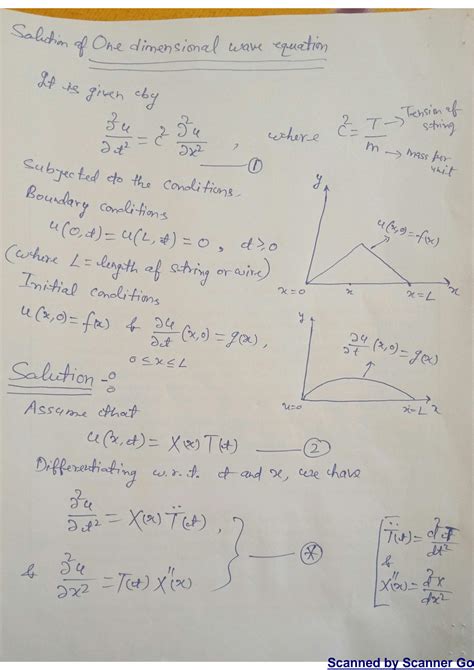 Solution of One dimensional wave equation
It is given by
∂²u/∂t² = c² ∂²u/∂x² , where c² = T/m → Tension of string → mass per unit
①
Subjected to the conditions.
Boundary conditions
u(0,t) = u(L,t) = 0 , t ≥ 0
(where L = length of string or wire)
Initial conditions
u(x,0) = f(x) & ∂u/∂t (x,0) = g(x),
0 ≤ x ≤ L
y
u(x,0) = f(x)
x=0 x x=L x
y
∂u/∂t (x,0) = g(x)
x=0 x=L x
Solution :-
Assume that
u(x,t) = X(x) T(t) — ②
Differentiating w.r.t. t and x, we have
∂²u/∂t² = X(x) T̈(t) ,
& ∂²u/∂x² = T(t) X''(x)
— ⊛
T̈(t) = d²T/dt²
&
X''(x) = d²X/dx²
Scanned by Scanner Go